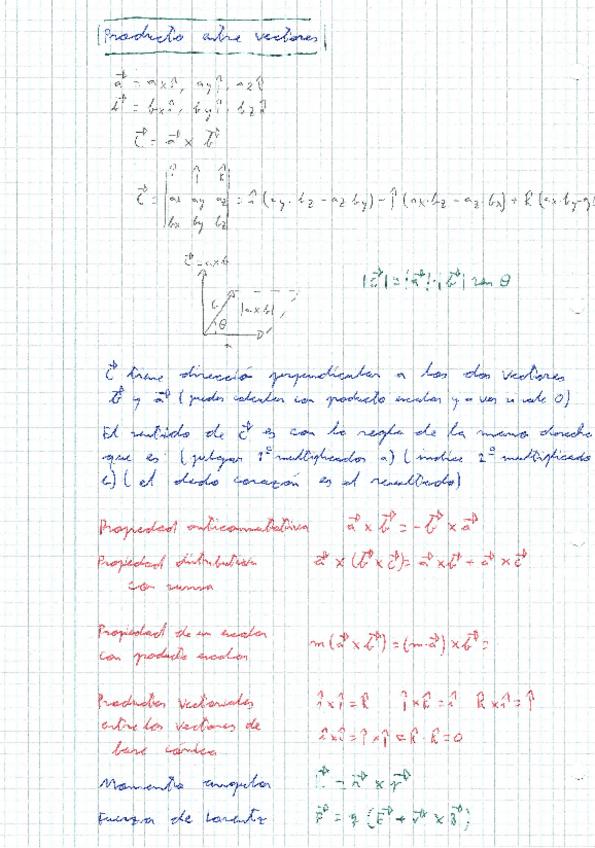 Producto entre vectores
a⃗ = ax î, ay ĵ, az k̂
b⃗ = bx î, by ĵ, bz k̂
c⃗ = a⃗ × b⃗
c⃗ = | î ĵ k̂ | ax ay az | bx by bz | = î (ay·bz - az by) - ĵ (ax·bz - az·bx) + k̂ (ax·by-
c⃗ = a×b
|c⃗| = |a⃗|·|b⃗| sen θ
b |a×b|
θ
a
c⃗ tiene dirección perpendicular a los dos vectores
b⃗ y a⃗ (puedes calcular con producto escalar y a ver si vale 0)
El sentido de c⃗ es con la regla de la mano derecha
que es: (pulgar 1º multiplicador a) (indice 2º multiplicado
b) (el dedo corazón es el resultado)
Propiedad anticonmutativa a⃗ × b⃗ = - b⃗ × a⃗
Propiedad distributiva a⃗ × (b⃗ × c⃗) = a⃗ × b⃗ + a⃗ × c⃗
con suma
Propiedad de un escalar m (a⃗ × b⃗) = (m·a⃗) × b⃗ =
con producto escalar
Productos vectoriales î × ĵ = k̂ ĵ × k̂ = î k̂ × î = ĵ
entre los vectores de î × î = ĵ × ĵ = k̂ · k̂ = 0
base
Momento angular L⃗ = r⃗ × p⃗
Fuerza de Lorentz F⃗ = q (E⃗ + v⃗ × B⃗)